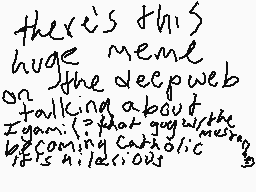 there's this
huge meme
on the deepweb
talking about
Iyami(?that guy w/the mustache)
becoming catholic
it's hilarious